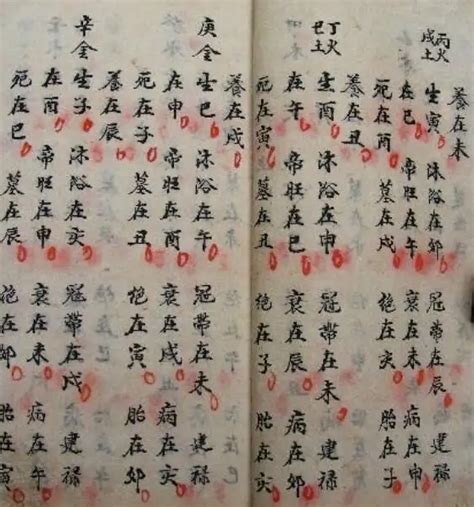 丙火
戊土
養在未
生寅 沐浴在卯 冠帶在辰 建禄
在巳 帝旺在午 衰在未 病在申
死在酉 墓在戌 绝在亥 胎在子
養在丑
丁火
巳土
生酉 沐浴在申 冠帶在未 建禄
在午 帝旺在巳 衰在辰 病在卯
死在寅 墓在丑 绝在子 胎在亥
養在戌
庚金
生巳 沐浴在午 冠帶在未 建禄
在申 帝旺在酉 衰在戌 病在亥
死在子 墓在丑 绝在寅 胎在卯
養在辰
辛金
生子 沐浴在亥 冠帶在戌 建禄
在酉 帝旺在申 衰在未 病在午
死在巳 墓在辰 绝在卯 胎在寅